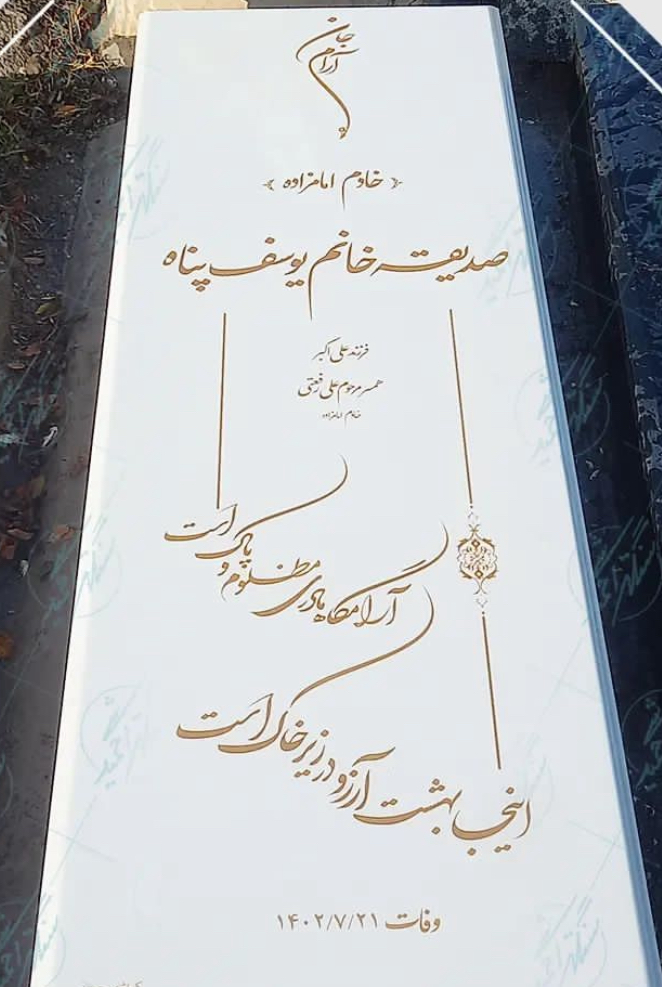 آرام جان
خادم امامزاده
صدیقه خانم یوسف پناه
فرزند علی اکبر
همسر مرحوم علی رفعتی
خادم امامزاده
آرامگاه مادری مظلوم و پاک است
اینجا بهشت آرزو در زیر خاک است
وفات ۱۴۰۲/۷/۲۱